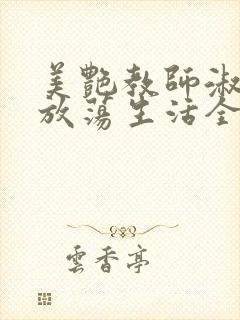 美艷教師淑
放蕩生活全
雲香亭